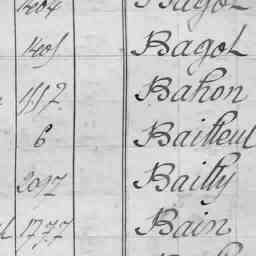 1404 Bagot
1405 Bagot
1512 Bahon
6 Bailleul
2097 Bailly
1777 Bain